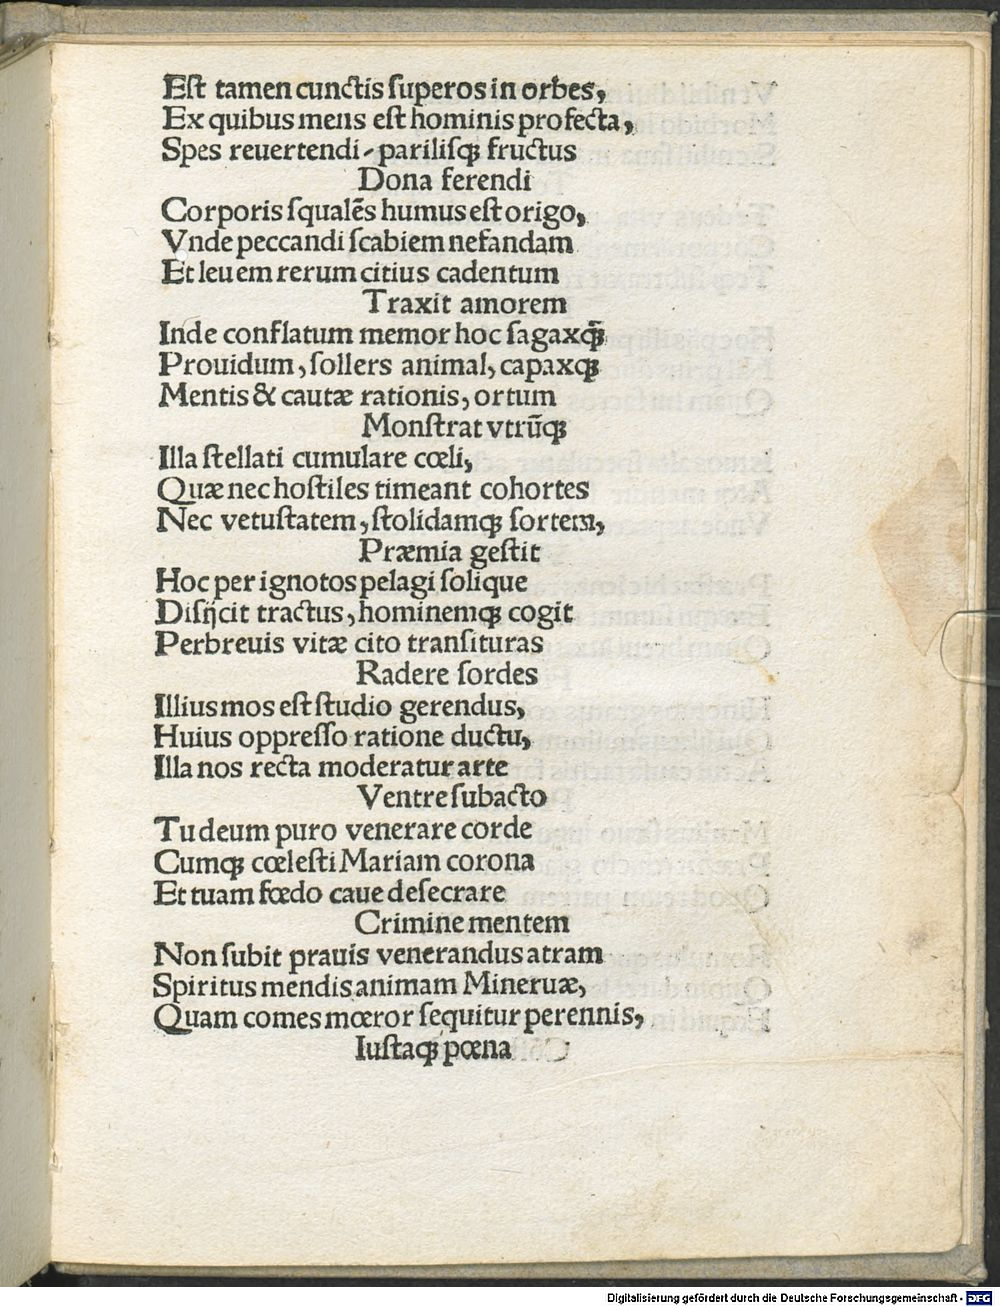 Eſt tamen cunctis ſuperos in orbes,
Ex quibus mens eſt hominis profecta,
Spes reuertendi, pariliſqꝫ fructus
Dona ferendi
Corporis ſqualēs humus eſt origo,
Vnde peccandi ſcabiem nefandam
Et leuem rerum citius cadentum
Traxit amorem
Inde conflatum memor hoc ſagaxqꝫ
Prouidum, ſollers animal, capaxqꝫ
Mentis & cautæ rationis, ortum
Monſtrat vtrūqꝫ
Illa ſtellati cumulare cœli,
Quæ nec hoſtiles timeant cohortes
Nec vetuſtatem, ſtolidamqꝫ ſortem,
Præmia geſtit
Hoc per ignotos pelagi ſolique
Diſijcit tractus, hominemqꝫ cogit
Perbreuis vitæ cito tranſituras
Radere ſordes
Illius mos eſt ſtudio gerendus,
Huius oppreſſo ratione ductu,
Illa nos recta moderatur arte
Ventre ſubacto
Tu deum puro venerare corde
Cumqꝫ cœleſti Mariam corona
Et tuam fœdo caue deſecrare
Crimine mentem
Non ſubit prauis venerandus atram
Spiritus mendis animam Mineruæ,
Quam comes mœror ſequitur perennis,
Iuſtaqꝫ pœna
Digitalisierung gefördert durch die Deutsche Forschungsgemeinschaft - DFG